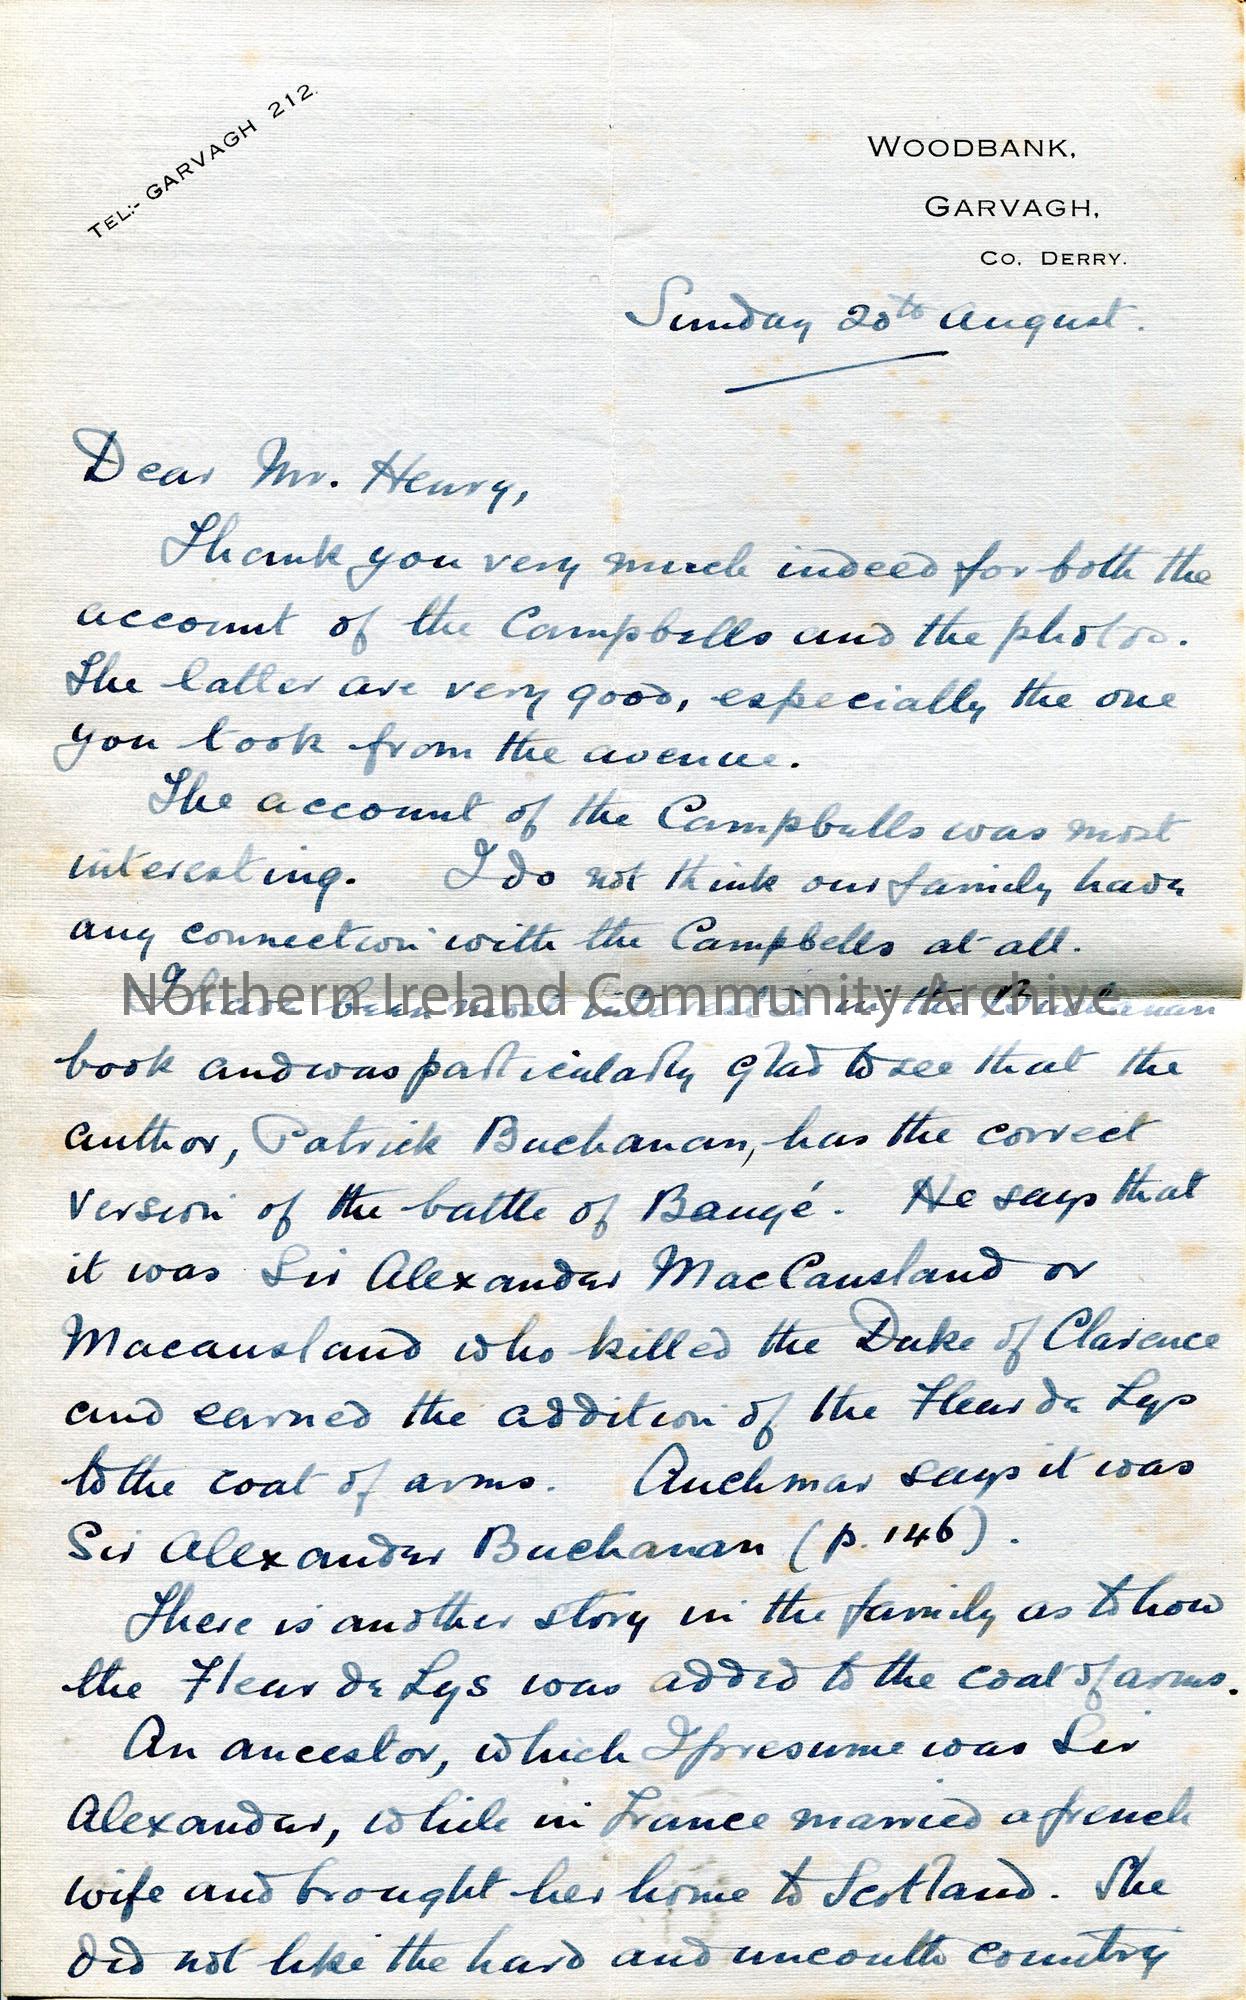 TEL:- GARVAGH 212.
WOODBANK,
GARVAGH,
CO. DERRY.
Sunday 20th August.
Dear Mr. Henry,
Thank you very much indeed for both the
account of the Campbells and the photos.
The latter are very good, especially the one
you took from the avenue.
The account of the Campbells was most
interesting. I do not think our family have
any connection with the Campbells at all.
Northern Ireland Community Archive
I have been most interested in the Buchanan
book and was particularly glad to see that the
author, Patrick Buchanan, has the correct
version of the battle of Baugé. He says that
it was Sir Alexander MacCausland or
Macausland who killed the Duke of Clarence
and earned the addition of the Fleur de Lys
to the coat of arms. Auchmar says it was
Sir Alexander Buchanan (p. 146).
There is another story in the family as to how
the Fleur de Lys was added to the coat of arms.
An ancestor, which I presume was Sir
Alexander, while in France married a french
wife and brought her home to Scotland. She
did not like the hard and uncouth country